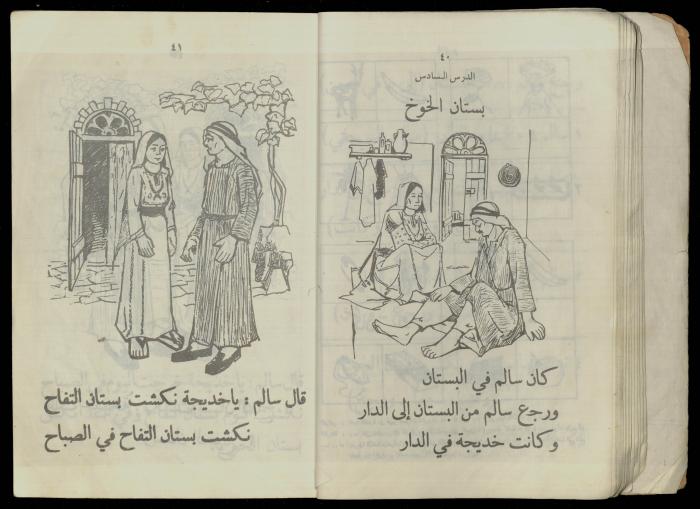 ٤٠
الدرس السادس
بستان الخوخ
كان سالم في البستان
ورجع سالم من البستان إلى الدار
وكانت خديجة في الدار
٤١
قال سالم : ياخديجة نكشت بستان التفاح
نكشت بستان التفاح في الصباح